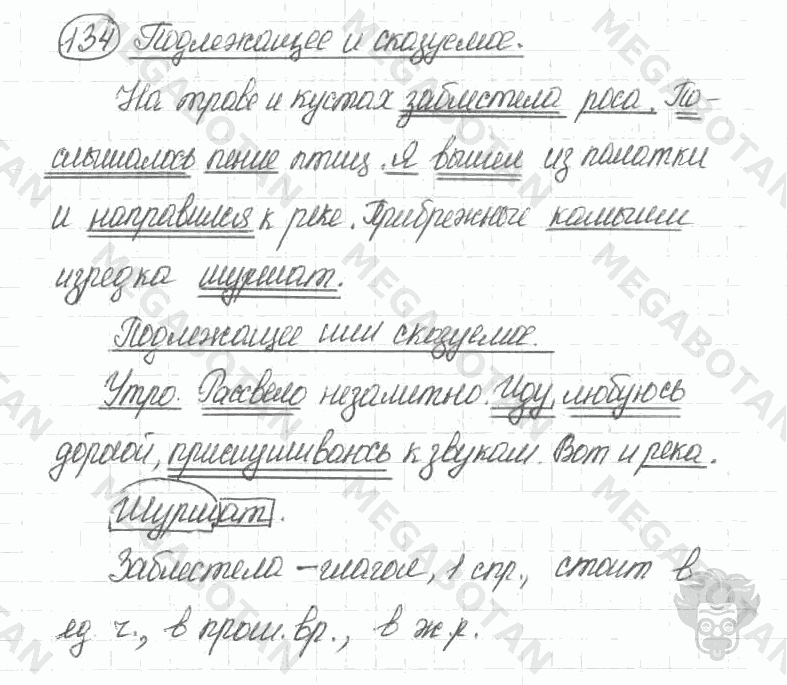 134 Подлежащее и сказуемое.
На траве и кустах заблестела роса. По-
слышалось пение птиц. Я вышел из палатки
и направился к реке. Прибрежные камыши
изредка шуршат.
Подлежащее или сказуемое.
Утро. Рассвело незаметно. Иду, любуюсь
дорогой, прислушиваюсь к звукам. Вот и река.
Шуршат.
Заблестела – глагол, 1 спр., стоит в
ед. ч., в прош. вр., в ж.р.
MEGABOTAN